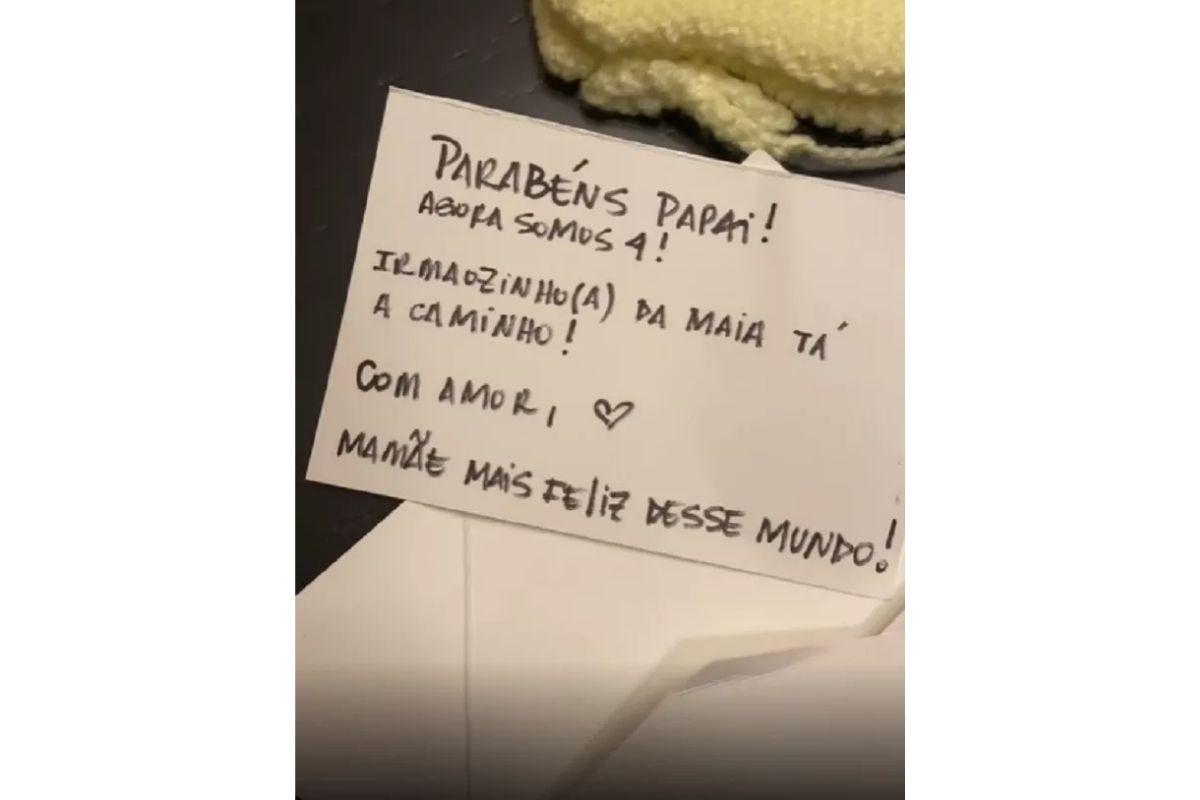 PARABÉNS PAPAi!
AGORA SOMOS 4!
IRMAOZiNHO(A) DA MAiA TÁ
A CAMiNHO!
COM AMOR, ♡
MAMÃE MAiS FELiZ DESSE MUNDO!